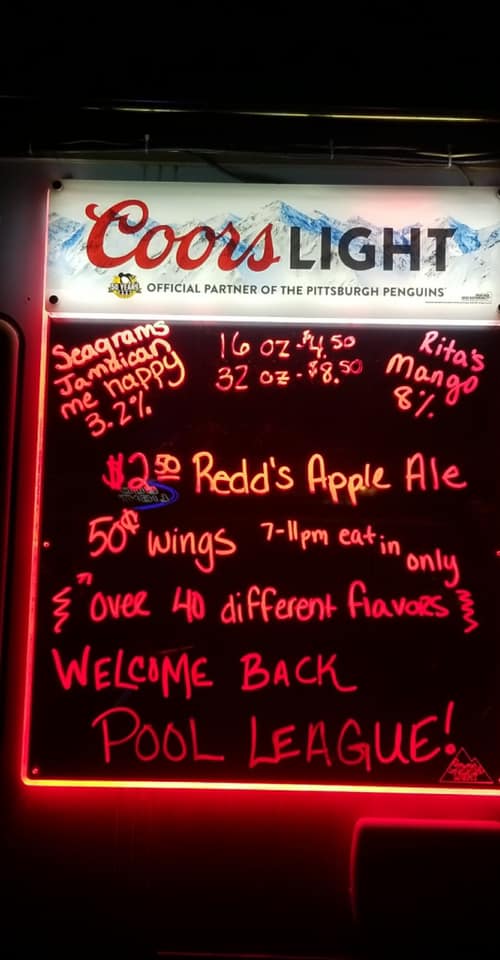 Coors LIGHT
50 YEARS
OFFICIAL PARTNER OF THE PITTSBURGH PENGUINS
Seagrams
Jamaican
me happy
3.2%
16 oz - $4.50
32 oz - $8.50
Rita's
Mango
8%
$2.50 Redd's Apple Ale
50¢ wings 7-11pm eat in only
"over 40 different flavors
WELCOME BACK
POOL LEAGUE!